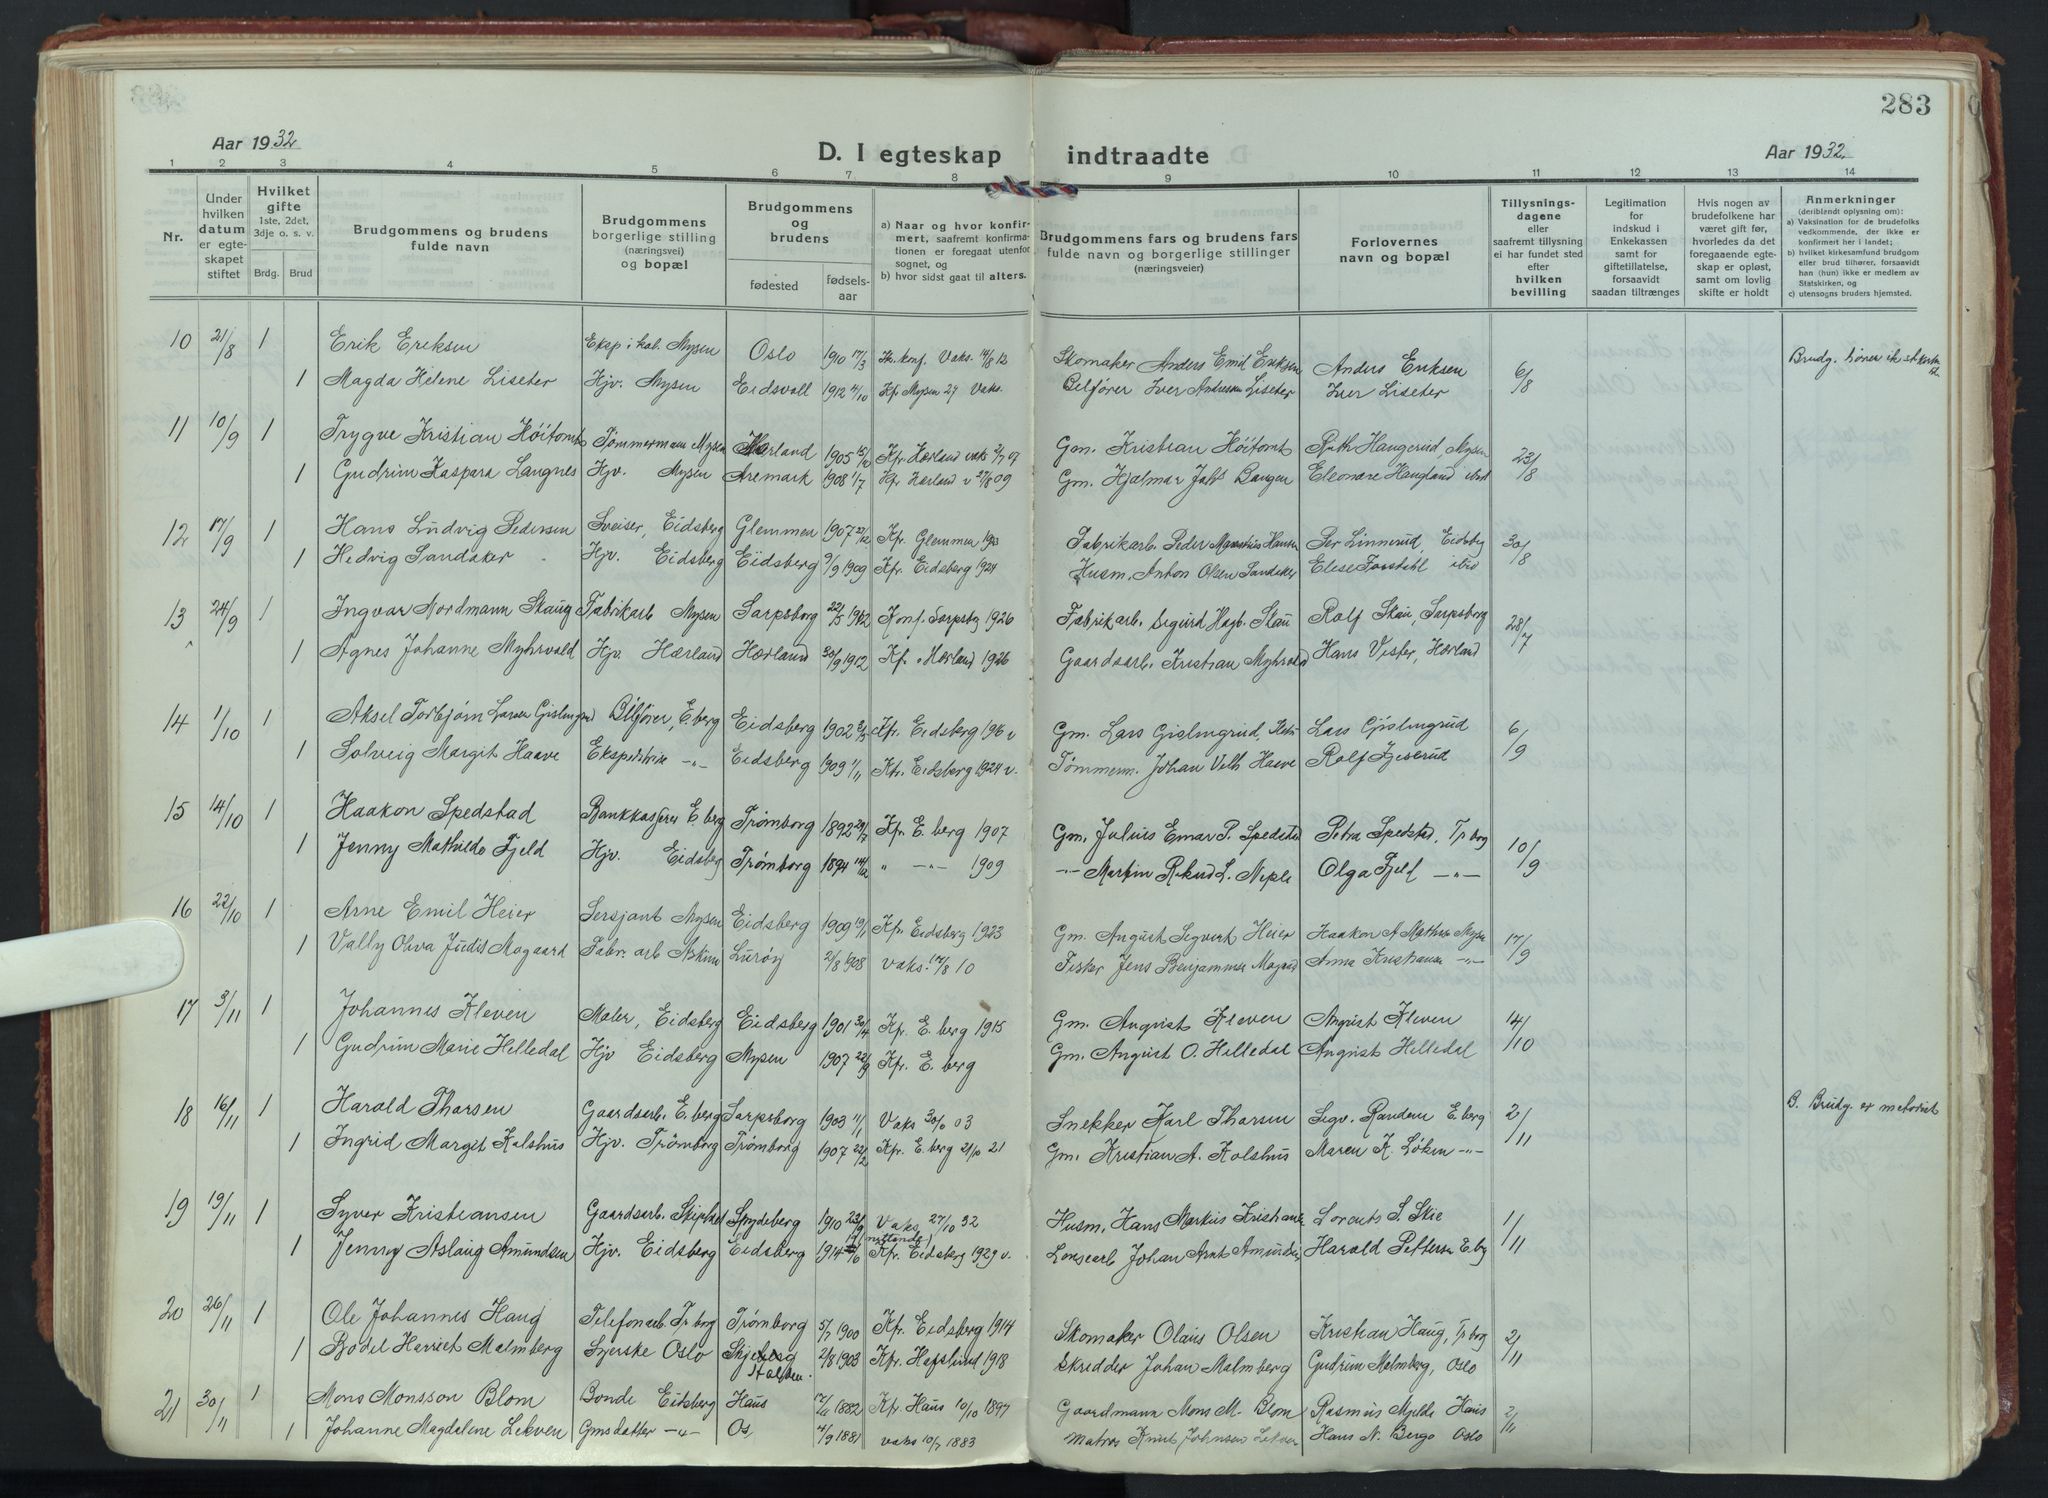 283
Aar 1932
D. I egteskap indtraadte
Aar 1932
1 2 3 4 5 6 7 8 9 10 11 12 13 14
Nr.
Under hvilken datum er egteskapet stiftet
Hvilket gifte 1ste, 2det, 3dje o. s. v.
Brdg. Brud
Brudgommens og brudens fulde navn
Brudgommens borgerlige stilling (næringsvei) og bopæl
Brudgommens og brudens
fødested
fødselsaar
a) Naar og hvor konfirmert, saafremt konfirmationen er foregaat utenfor sognet, og
b) hvor sidst gaat til alters.
Brudgommens fars og brudens fars fulde navn og borgerlige stillinger (næringsveier)
Forlovernes navn og bopæl
Tillysningsdagene eller saafremt tillysning ei har fundet sted efter hvilken bevilling
Legitimation for indskud i Enkekassen samt for giftetillatelse, forsaavidt saadan tiltrænges
Hvis nogen av brudefolkene har været gift før, hvorledes da det foregaaende egteskap er opløst, samt om lovlig skifte er holdt
Anmerkninger (deriblandt oplysning om):
a) Vaksination for de brudefolks vedkommende, der ikke er konfirmert her i landet;
b) hvilket kirkesamfund brudgom eller brud tilhører, forsaavidt han (hun) ikke er medlem av Statskirken, og
c) utensogns bruders hjemsted.
10 21/8 1 Erik Eriksen Eksp i kol. Mysen Oslo 1910 17/3 Ik. konf. Vaks. 14/8 12 Skomaker Anders Emil Eriksen Anders Eriksen 6/8 Brudg. hører ik
1 Magda Helene Liseter Hjv. Mysen Eidsvoll 1912 4/10 Kf. Mysen 27 Vaks. Bilfører Iver Andreassen Liseter Iver Liseter
11 10/9 1 Trygve Kristian Höitomt Tømmermann Mysen Hærland 1905 Kfr. Hærland vaks 2/7 07 Gm. Kristian Höitomt Ruth Haugerud, Mysen 23/8
1 Gudrun Kaspara Langnes Hjv. Mysen Aremark 1908 1/7 Kfr Hærland v 27/8 09 Gm. Hjalmar Bangen Eleonore Haugland ibid
12 17/9 1 Hans Ludvig Pedersen Sveiser, Eidsberg Glemmen 1907 27/12 Kfr. Glemmen 1923 Fabrikarb. Peder Hansen Per Linnerud, Eidsbg 30/8
1 Hedvig Sandaker Hjv. Eidsberg Eidsberg 9/9 1909 Kfr. Eidsberg 1924 Husm. Anton Olsen Sandaker Elise ibid
13 24/9 1 Ingvar Nordmann Skaug Fabrikarb Mysen Sarpsborg 22/5 1912 Konf. Sarpsbg 1926 Fabrikarb. Sigurd Hagb. Skau Rolf Skau, Sarpsborg 28/7
1 Agnes Johanne Myhrvold Hjv. Hærland Hærland 30/9 1912 Kf. i Hærland 1926 Gaardsarb. Kristian Myhrvold Hans Vister, Hærland
14 1/10 1 Aksel Torbjørn Larsen Gislingrud Bilfører, E.berg Eidsberg 1902 Kfr. Eidsberg 1916 v Gm. Lars Gislingrud, Lars Gislingrud 6/9
1 Solveig Margit Haave Ekspeditrise -„- Eidsberg 1909 1/11 Kfr. Eidsberg 1924 v. Tømmerm. Johan Vilh Haave Rolf
15 14/10 1 Haakon Spedstad Bankkasserer E. berg Trømborg 1892 29/7 Kfr. E. berg 1907 Gm. Julius Emar P. Spedstad Petra Spedstad, Tr borg 10/9
1 Jenny Mathilde Fjeld Hjv. Eidsberg Trømborg 1894 14/12 „ -„- 1909 -„- Martin L. Neple Olga Fjeld -„-
16 22/10 1 Arne Emil Heier Sersjant Mysen Eidsberg 1909 19/1 Kfr. Eidsberg 1923 Gm. August Sigvert Heier Haakon A Mathis Mysen 17/9
1 Vally Oliva Judit Mogaard Fabr. arb Askim Lurøy 2/8 1908 vaks. 17/8 10 Fisker Jens Benjaminsen Mogaard Anna Kristiansen -„-
17 3/11 1 Johannes Kleven Maler, Eidsberg Eidsberg 1901 30/4 Kfr. E. berg 1915 Gm. August Kleven August Kleven 14/10
1 Gudrun Marie Helledal Hjv Eidsberg Mysen 1907 22/9 Kfr. E. berg Gm. August O. Helledal August Helledal
18 16/11 1 Harald Tharsen Gaardsarb. E. berg Sarpsborg 1903 11/1 Vaks 03 Snekker Karl Tharsen Sigv. Randem E. berg 2/11 B. Brudg. er metodist
1 Ingrid Margit Kolshus Hjv. Trømborg Trømborg 1907 22/2 Kfr. E. berg 21 Gm. Kristian A. Kolshus Maren K. Løken -„-
19 19/11 1 Syver Kristiansen Gaardsarb. Skiptvet Spydeberg 1910 23/9 Vaks. 27/10 32 Husm. Hans Markus Kristiansen Lorents S. Skie 1/11
1 Jenny Aslaug Amundsen Hjv. Eidsberg Eidsberg 1914 Kfr. Eidsberg 1929 v. Johan Arnt Amundsen Harald Pettersen E.bg
20 26/11 1 Ole Johannes Haug Telefonarb Tr borg Trømborg 5/7 1900 Kfr. Eidsberg 1914 Skomaker Olaus Olsen Kristian Haug, Tr borg 2/11
1 Bodil Harriet Malmberg Syerske Oslo Skjeberg 2/8 1903 Kfr. Hafslund 1918 Skredder Johan Malmberg Gudrun Malmberg, Oslo
21 30/11 1 Mons Monsson Blom Bonde Eidsberg Haus 1882 Kfr. Haus 10/10 1897 Gaardmann Mons M. Blom Rasmus Mjelde Haus 2/11
1 Johanne Magdalene Lekven Gmsdatter -„- Os, 4/9 1881 vaks 10/7 1883 Matros Knut Johnsen Lekven Hans N. Berge Oslo